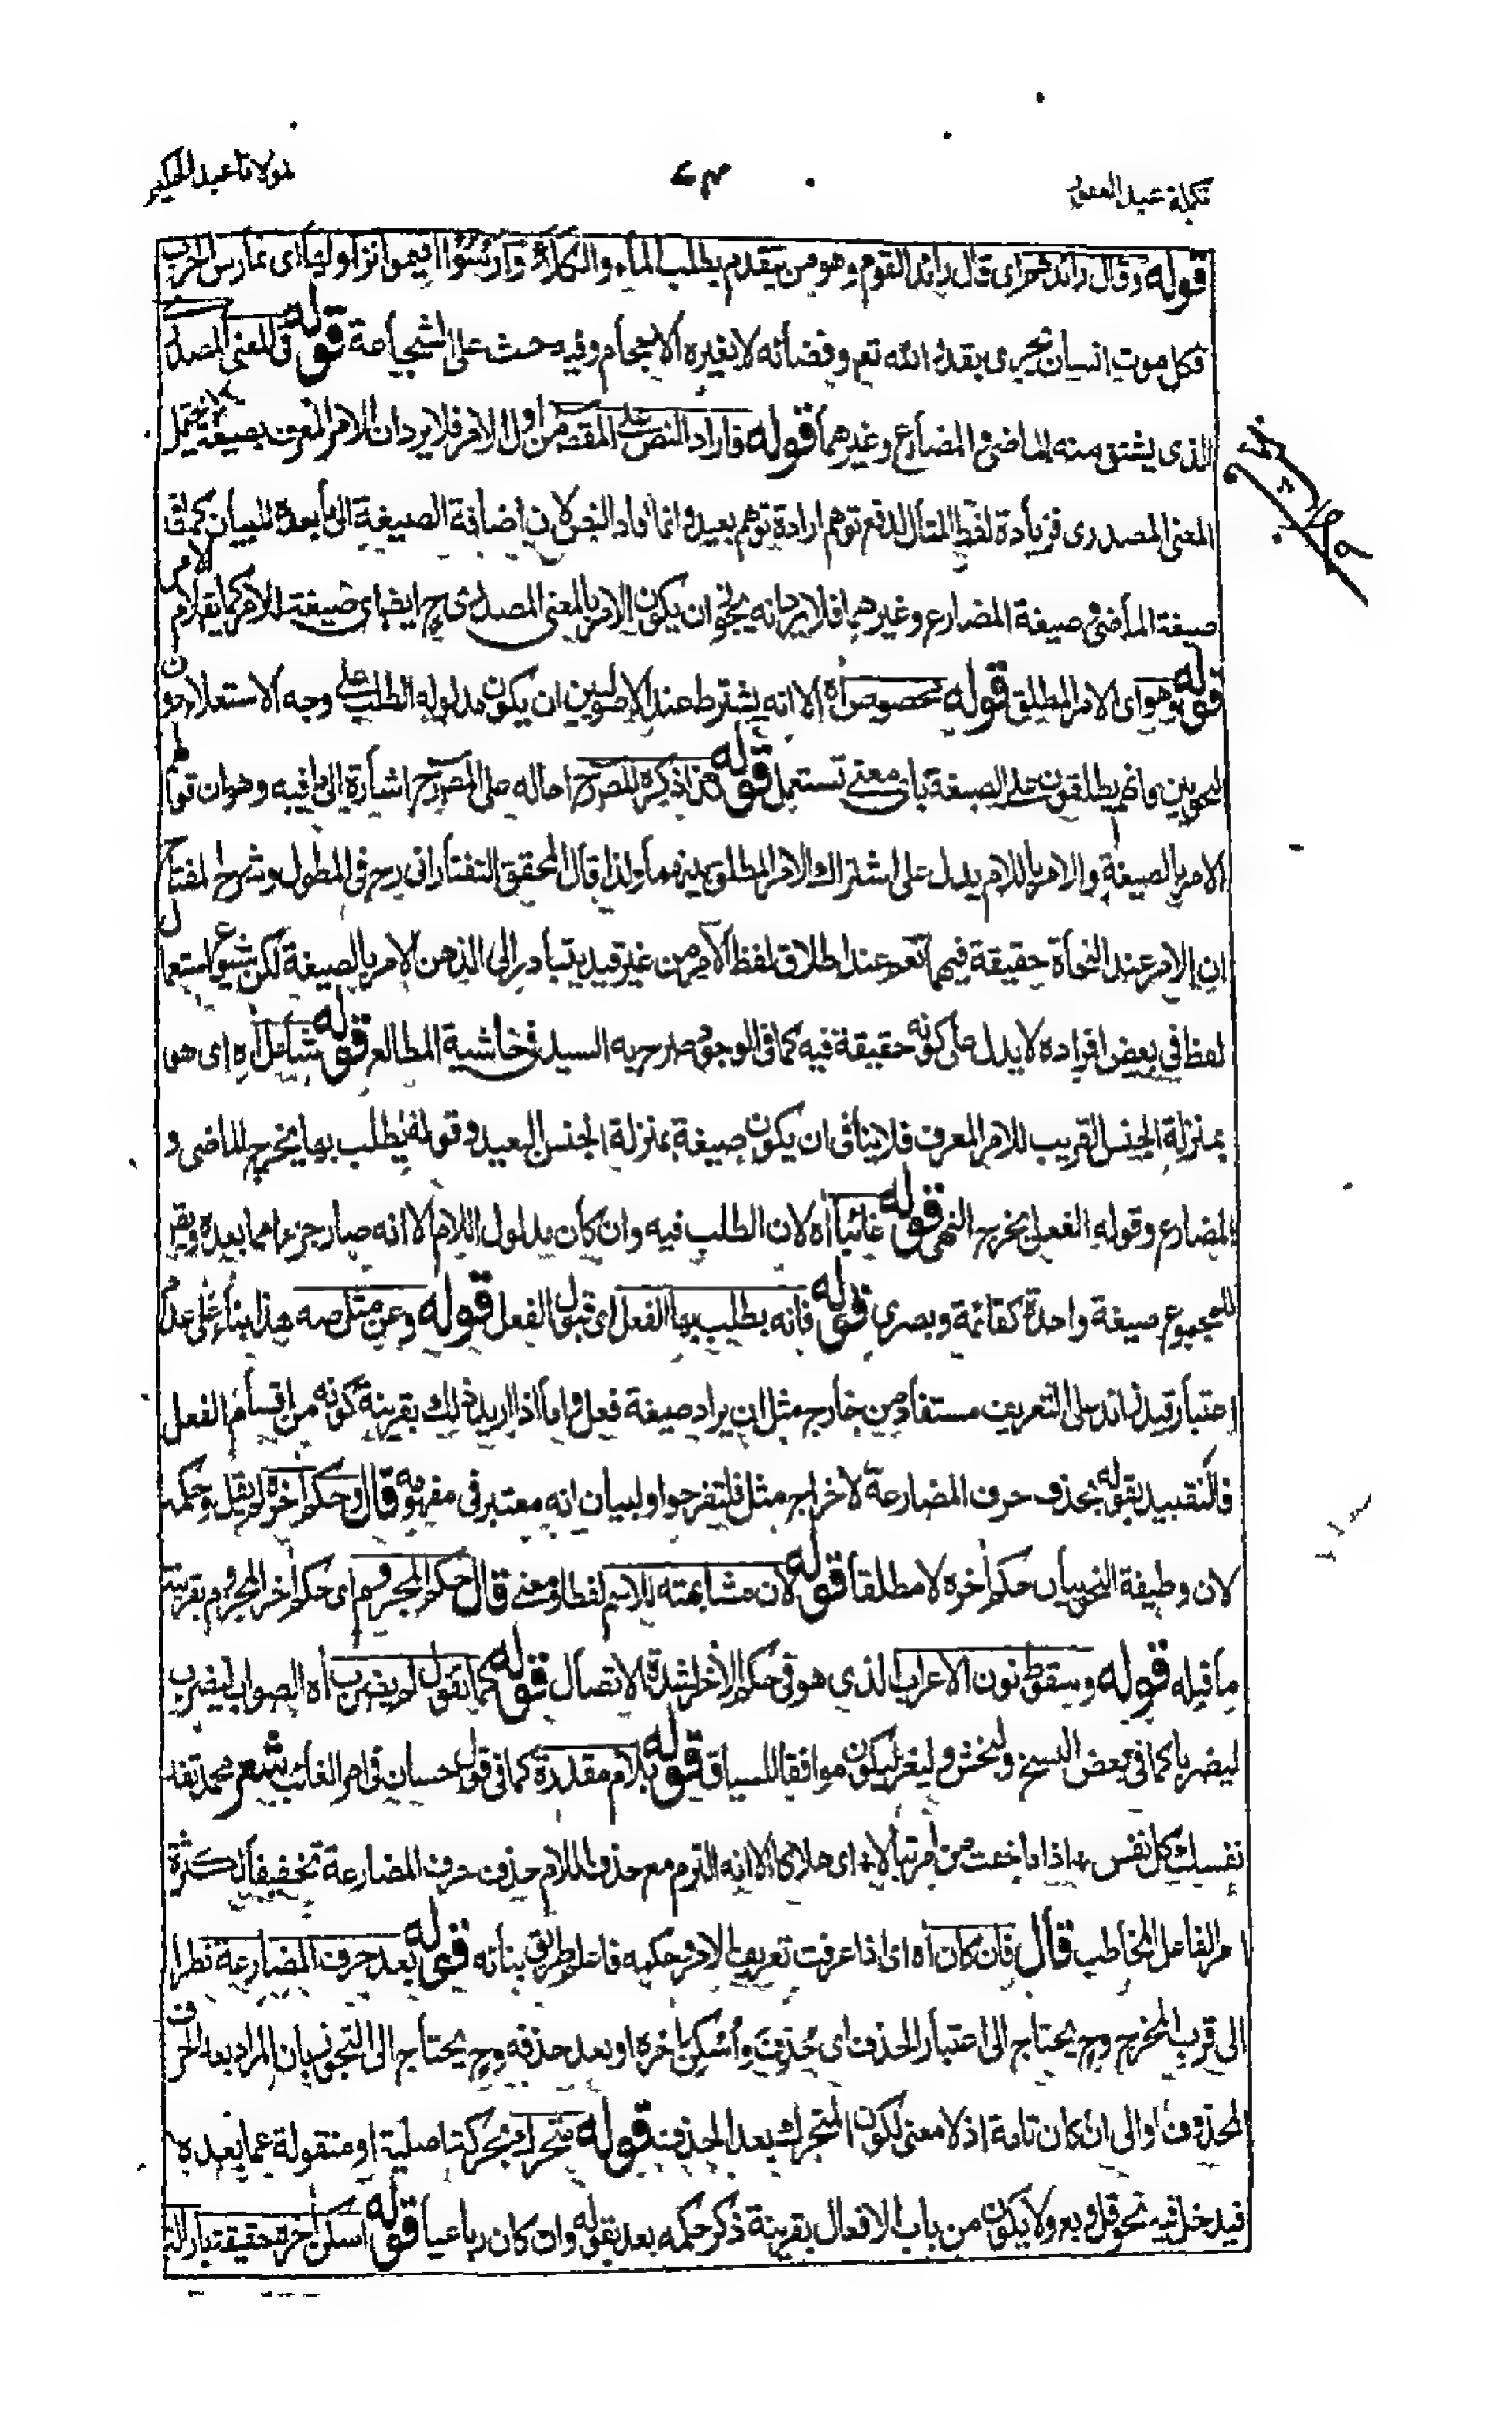 تكملة عبد الغفور
لمولانا عبد الحكيم
قوله وقال رائدهم اى قال رائد القوم وهو من يتقدم بطلب الماء والكلأ وارسوا اقيموا نزاولها اى نمارس الحرب
فكل موت انسان يجرى بقدر الله تعم وقضائه لا يغيره الاحجام وفيه حث على الشجاعة قوله فى المعنى المصدرى
الذى يشتق منه الماضى والمضارع وغيرهما قوله فاراد النص على المقصود من اول الامر فلا يرد ان الامر المعرف بصيغة لا يحتمل
المعنى المصدرى فزيادة لفظ المثال لدفع توهم ارادة توهم بعيد وانما افاد النص لان اضافة الصيغة الى ما بعده للبيان كما فى
صيغة الماضى وصيغة المضارع وغيرهما فلا يرد انه يجوز ان يكون الامر بالمعنى المصدرى ح ايضا اى صيغة للامر كما يقم لام الامر
قوله وهو اى الامر المطلق قوله مخصوص اه الا انه يشترط عند الاصوليين ان يكون مدلوله الطلب على وجه الاستعلاء دون
النحويين وانهم يطلقون على الصيغة باى معنى تستعمل قوله هذا ذكره المصرح احاله على المصرح اشارة الى ما فيه وهو ان قولهم
الامر بالصيغة والامر باللام يدل على اشتراك الامر المطلق بينهما ولذا قال المحقق التفتازانى رح فى المطول وشرح المفتاح
ان الامر عند النحاة حقيقة فيهما نعم عند اطلاق لفظ الامر من غير قيد يتبادر الى الذهن الامر بالصيغة لكن شيوع استعمال
لفظ فى بعض افراده لا يدل على كونه حقيقة فيه كما فى الوجود صرح به السيد فى حاشية المطالع قوله شامل اه اى هو
بمنزلة الجنس القريب للامر المعرف فلا ينافى ان يكون صيغة بمنزلة الجنس البعيد وقوله يطلب بها يخرج الماضى و
المضارع وقوله الفعل يخرج النهى قوله غائبا اه لان الطلب فيه وان كان مدلول اللام الا انه صار جزءا مما بعده ويقم
للمجموع صيغة واحدة كقائمة وبصرى قوله فانه يطلب بها الفعل اى قبول الفعل قوله وعن مثل صه هذا بناء على عدم
اعتبار قيد زائد على التعريف مستفاد من خارج مثل ان يراد صيغة فعل واما اذا اريد ذلك بقرينة كونه من اقسام الفعل
فالتقييد بقوله بحذف حرف المضارعة لاخراج مثل فلتفرحوا ولبيان انه معتبر فى مفهومه قال وحكم اخره لم يقل وحكمه
لان وظيفة النحويين حكم اخره لا مطلقا قوله لان مشابهته للاسم لفظا ومعنى قال حكم المجزوم اى حكم اخر المجزوم بقرينة
ما قبله قوله وسقط نون الاعراب الذى هو فى حكم الاخر لشدة الاتصال قوله كما تقول لم يضرب اه الصواب ليضرب
ليضربا كما فى بعض النسخ وليخش وليغز ليكون موافقا للسياق قوله بلام مقدرة كما فى قول حسان فى امر الغائب شعر محمد تفد
نفسك كل نفس + اذا ما خفت من امر تبالا + اى هلاكا الا انه التزم مع حذف اللام حذف حرف المضارعة تخفيفا لكثرة
امر الفاعل المخاطب قال فان كان اه اى اذا عرفت تعريف الامر وحكمه فاعلم طريق بنائه قوله بعد حرف المضارعة نظرا
الى قرب المخرج وح يحتاج الى اعتبار الحذف اى حذف واسكن اخره او بعد حذفه وح يحتاج الى التجوز بان المراد بعد الحرف
المحذوف والى ان كان تامة اذ لا معنى لكون المتحرك بعد الحذف قوله متحرك بحركة اصلية او منقولة عما بعده
فيدخل فيه نحو قل وبع ولا يكون من باب الافعال بقرينة ذكر حكمه بعد بقوله وان كان رباعيا قوله اسكن اخره حقيقة